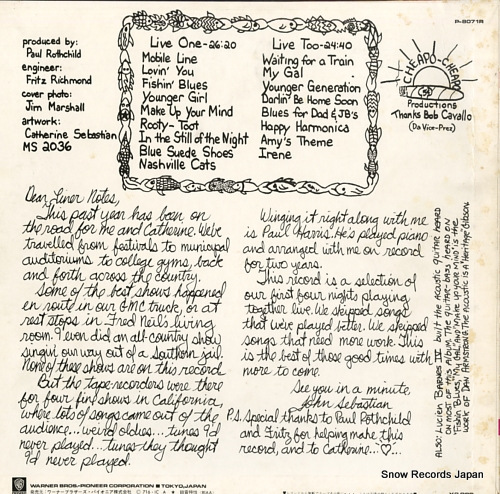 P-8071R
produced by:
Paul Rothchild
engineer:
Fritz Richmond
cover photo:
Jim Marshall
artwork:
Catherine Sebastian
MS 2036
Live One-26:20
Mobile Line
Lovin' You
Fishin' Blues
Younger Girl
Make Up Your Mind
Rooty-Toot
In the Still of the Night
Blue Suede Shoes
Nashville Cats
Live Too-24:40
Waiting for a Train
My Gal
Younger Generation
Darlin' Be Home Soon
Blues for Dad & JB's
Happy Harmonica
Amy's Theme
Irene
CHEAPO-CHEAPO
Productions
Thanks Bob Cavallo
(Da Vice-Prez)
Dear Liner Notes,
This past year has been on
the road for me and Catherine. We've
travelled from festivals to municipal
auditoriums to college gyms, back
and forth across the country.
Some of the best shows happened
en route in our GMC truck, or at
rest stops in Fred Neil's living
room. I even did an all-country show
singin' our way out of a Southern jail.
None of these shows are on this record
But the tape recorders were there
for four fine shows in California,
where lots of songs came out of the
audience...weird oldies...tunes I'd
never played...tunes they thought
I'd never played.
Winging it right along with me
is Paul Harris. He's played piano
and arranged with me on record
for two years.
This record is a selection of
our first four nights playing
together live. We skipped songs
that we've played better. We skipped
songs that need more work. This
is the best of those good times with
more to come.
See you in a minute,
John Sebastian
P.S. Special thanks to Paul Rothchild
and Fritz for helping make this
record, and to Catherine...♡...
ALSO: Lucien BARNES IV built the acoustic guitar heard
on most of this album. The guitar-bass heard on
"Fishin' Blues," "My Gal," and "Make up your Mind" is the
work of DAN ARMSTRONG. The Acoustic is a Heritage Gibson.
WARNER BROS.-PIONEER CORPORATION ■ TOKYO, JAPAN
Snow Records Japan